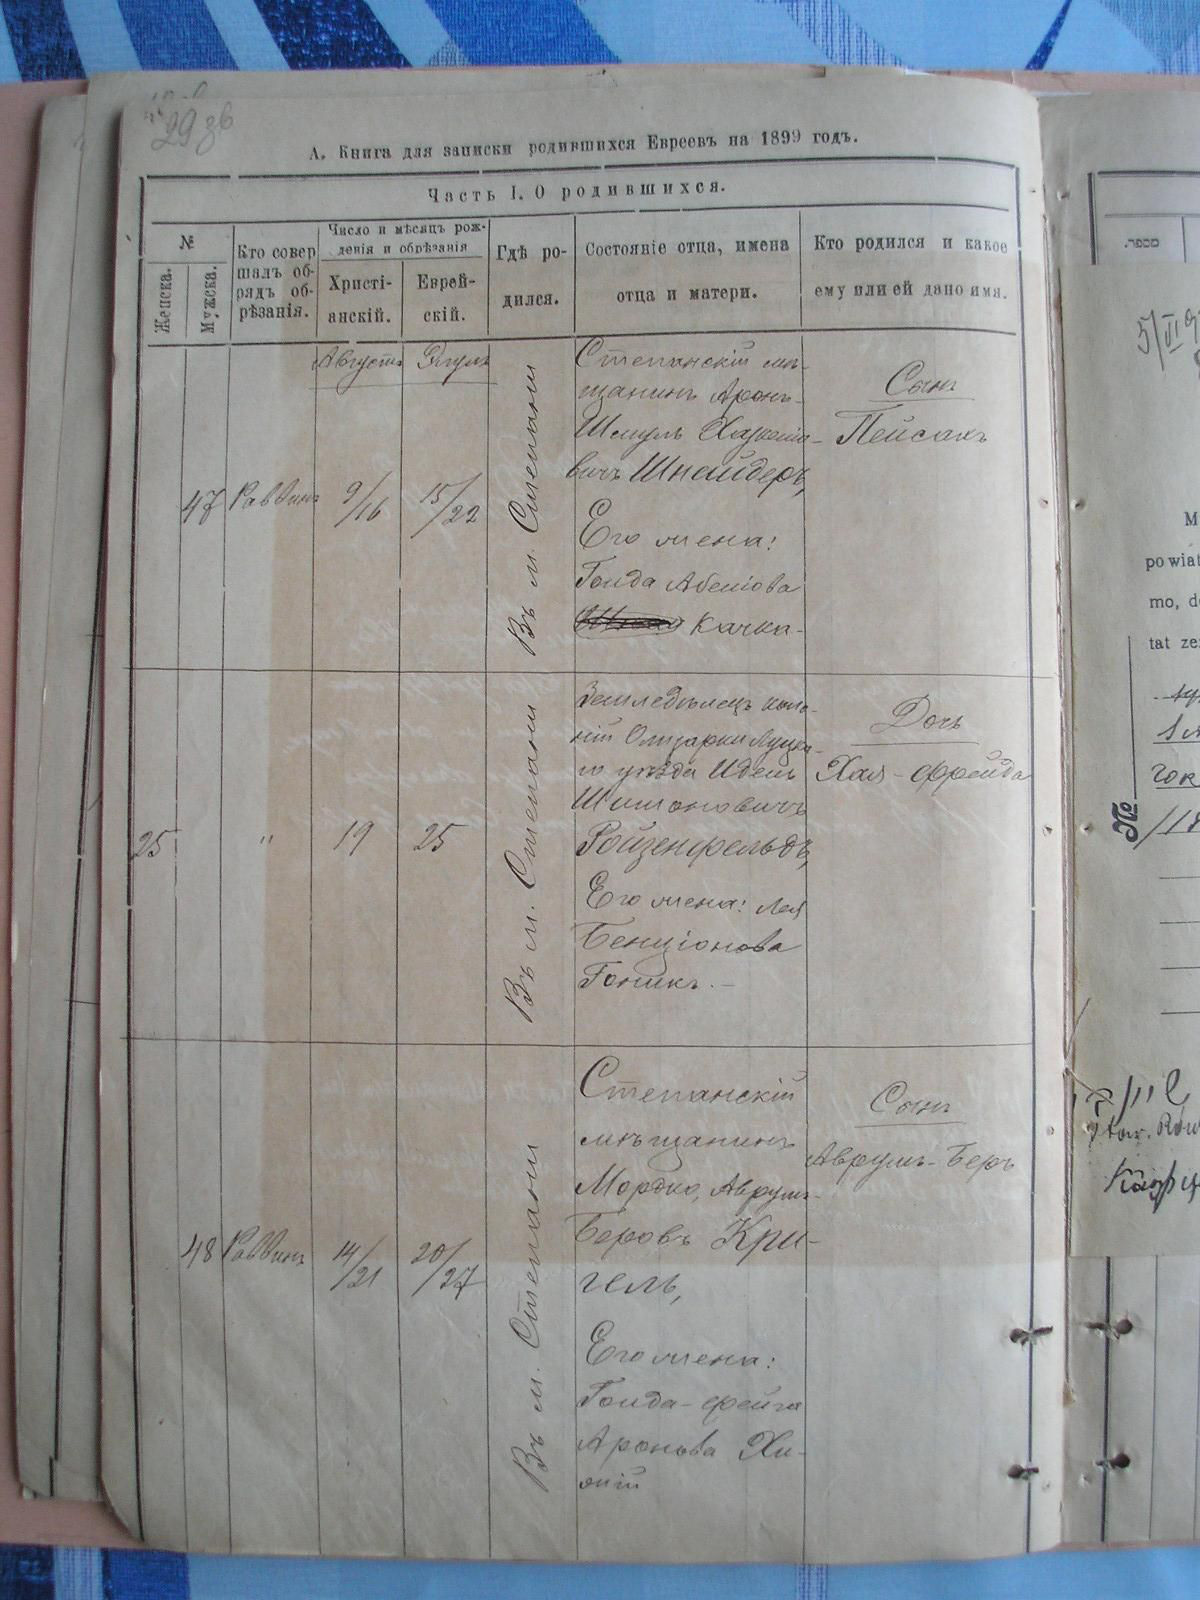 29 зв
А. Книга для записки родившихся Евреевъ на 1899 годъ.
Часть I. О родившихся.
№
Женска.
Мужска.
Кто совер
шалъ об-
рядъ об-
рѣзанія.
Число и мѣсяцъ рож-
денія и обрѣзанія
Христі-
анскій.
Еврей-
скій.
Гдѣ ро-
дился.
Состояніе отца, имена
отца и матери.
Кто родился и какое
ему или ей дано имя.
Августъ
Элулъ
47
Раввинъ
9/16
15/22
Въ м. Степани
Степанскій мѣ-
щанинъ Аронъ-
Шмуль
вичъ Шнейдеръ,
Его жена:
Гольда
Качка-
Сынъ
Пейсахъ
25
"
19
25
Въ м. Степани
Земледѣлецъ коло-
ніи Олизарки Луцка-
го уѣзда Идель
Шимоновичъ
Ройзенфельдъ,
Его жена: Лея
Бенціонова
Гоникъ.-
Дочь
Хая-Фрейда
48
Раввинъ
14/21
20/27
Въ м. Степани
Степанскій
мѣщанинъ
Мордко, Аврумъ-
Беровъ Кри-
гель,
Его жена:
Гольда-Фейга
Аронова
Сынъ
Аврумъ-Беръ
מספר.
5/VI
M
powiat
mo, d
tat ze
№